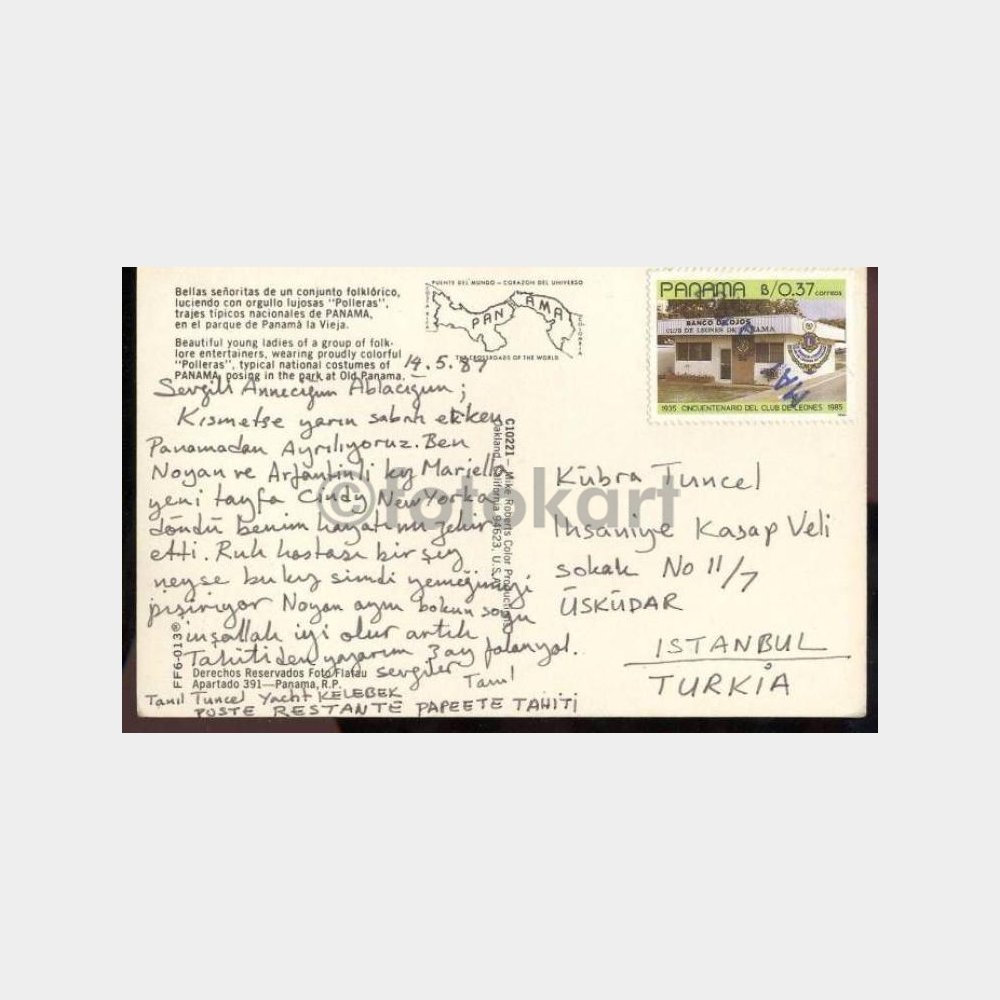 Bellas señoritas de un conjunto folklórico,
luciendo con orgullo lujosas "Polleras",
trajes típicos nacionales de PANAMA,
en el parque de Panamá la Vieja.
Beautiful young ladies of a group of folk-
lore entertainers, wearing proudly colorful
"Polleras", typical national costumes of
PANAMA, posing in the park at Old Panama.
PUENTE DEL MUNDO - CORAZON DEL UNIVERSO
COSTA RICA
PANAMA
COLOMBIA
THE CROSSROADS OF THE WORLD
14.5.87
Sevgili Anneciğim Ablacığım;
Kısmetse yarın sabah erken
Panamadan Ayrılıyoruz. Ben
Noyan ve Arjantinli kız Mariella
yeni tayfa Cindy New Yorka
döndü benim hayatımı zehir
etti. Ruh hastası bir şey
neyse bu kız şimdi yemeğimizi
pişiriyor Noyan aynı bokun soyu
inşallah iyi olur artık
Tahitiden yazarım 3 ay falan yol.
sevgiler
Tanıl
FF6-013®
Derechos Reservados Foto Flatau
Apartado 391—Panama, R.P.
Tanıl Tuncel Yacht KELEBEK
POSTE RESTANTE PAPEETE TAHITI
C10221— Mike Roberts Color Productions
Oakland, California 94623, U.S.A.
PANAMA B/0.37 correos
BANCO DE OJOS
CLUB DE LEONES DE PANAMA
MA
1935 CINCUENTENARIO DEL CLUB DE LEONES 1985
Kübra Tuncel
Ihsaniye Kasap Veli
sokak No 11/7
ÜSKÜDAR
ISTANBUL
TURKIA
©fotokart